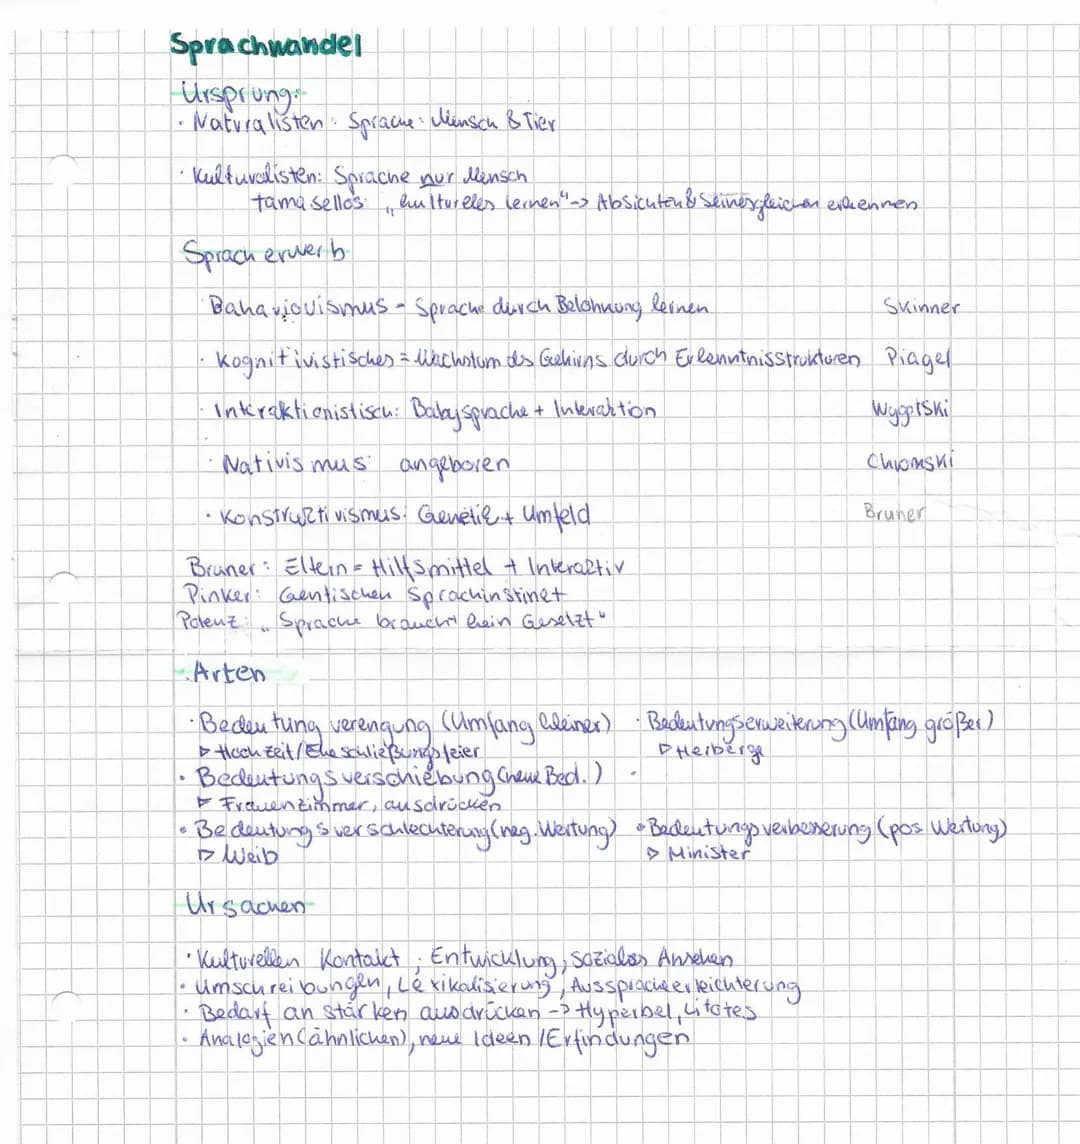 Sprachwandel
Ursprung:
· Naturalisten: Sprache: Mensch & Tier
· Kulturalisten: Sprache nur Mensch
tamasellos: „kultureles lernen" -> Absichten & Seinesgleichen erkennen
Spracherwerb
Bahaviouismus - Sprache durch Belohnung lernen Skinner
· Kognitivistisches = Wachstum des Gehirns durch Erkenntnisstrukturen Piaget
· Interaktionistisch: Babysprache + Interaktion Wygotski
· Nativismus: angeboren Chromski
· Konstruktivismus: Genetik + Umfeld Bruner
Bruner: Eltern = Hilfsmittel + Interaktiv
Pinker: Gentischen Sprachinstinkt
Potenz: „Sprache braucht kein Gesetzt"
· Arten
· Bedeutung verengung (Umfang kleiner) · Bedeutungserweiterung (Umfang größer)
▷ Hochzeit/Eheschließungsfeier ▷ Herberge
· Bedeutungsverschiebung (neue Bed.) ·
▷ Frauenzimmer, ausdrücken
· Bedeutungsverschlechterung (neg. Wertung) · Bedeutungsverbesserung (pos Wertung)
▷ Weib ▷ Minister
Ursachen
· Kulturellen Kontakt ; Entwicklung, soziales Ansehen
· Umschreibungen, Lexikalisierung, Ausspracheerleichterung
· Bedarf an stärken ausdrücken -> Hyperbel, Litotes
· Analogien (ähnlichen), neue Ideen / Erfindungen